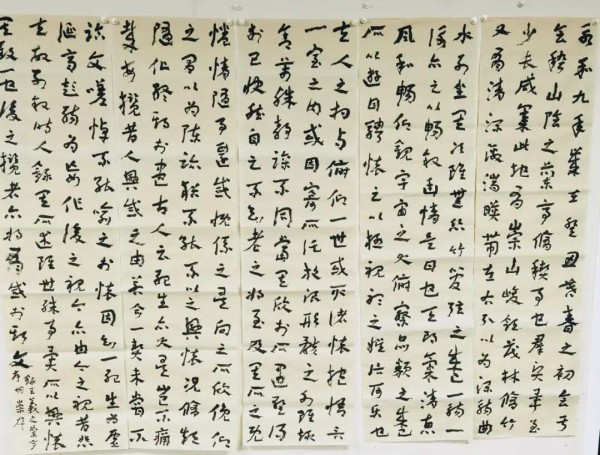 永和九年歲在癸丑暮春之初會于
會稽山陰之蘭亭脩稧事也群賢畢至
少長咸集此地有崇山峻領茂林脩竹
又有清流激湍暎帶左右引以為流觴曲
水列坐其次雖無絲竹管弦之盛一觴一
詠亦足以暢敘幽情是日也天朗氣清惠
風和暢仰觀宇宙之大俯察品類之盛
所以遊目騁懷足以極視聽之娛信可樂也
夫人之相與俯仰一世或取諸懷抱悟言
一室之內或因寄所託放浪形骸之外雖趣
舍萬殊靜躁不同當其欣於所遇暫得
於己快然自足不知老之將至及其所之既
惓情隨事遷感慨係之矣向之所欣俛仰
之間以為陳跡猶不能不以之興懷況脩短
隨化終期於盡古人云死生亦大矣豈不痛
哉每攬昔人興感之由若合一契未嘗不
臨文嗟悼不能喻之於懷固知一死生為虛
誕齊彭殤為妄作後之視今亦由今之視昔悲
夫故列敘時人錄其所述雖世殊事異所以興懷
其致一也後之攬者亦將有感於斯文
錄王羲之蘭亭